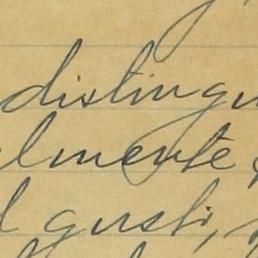 distingu
lmente
gusti,